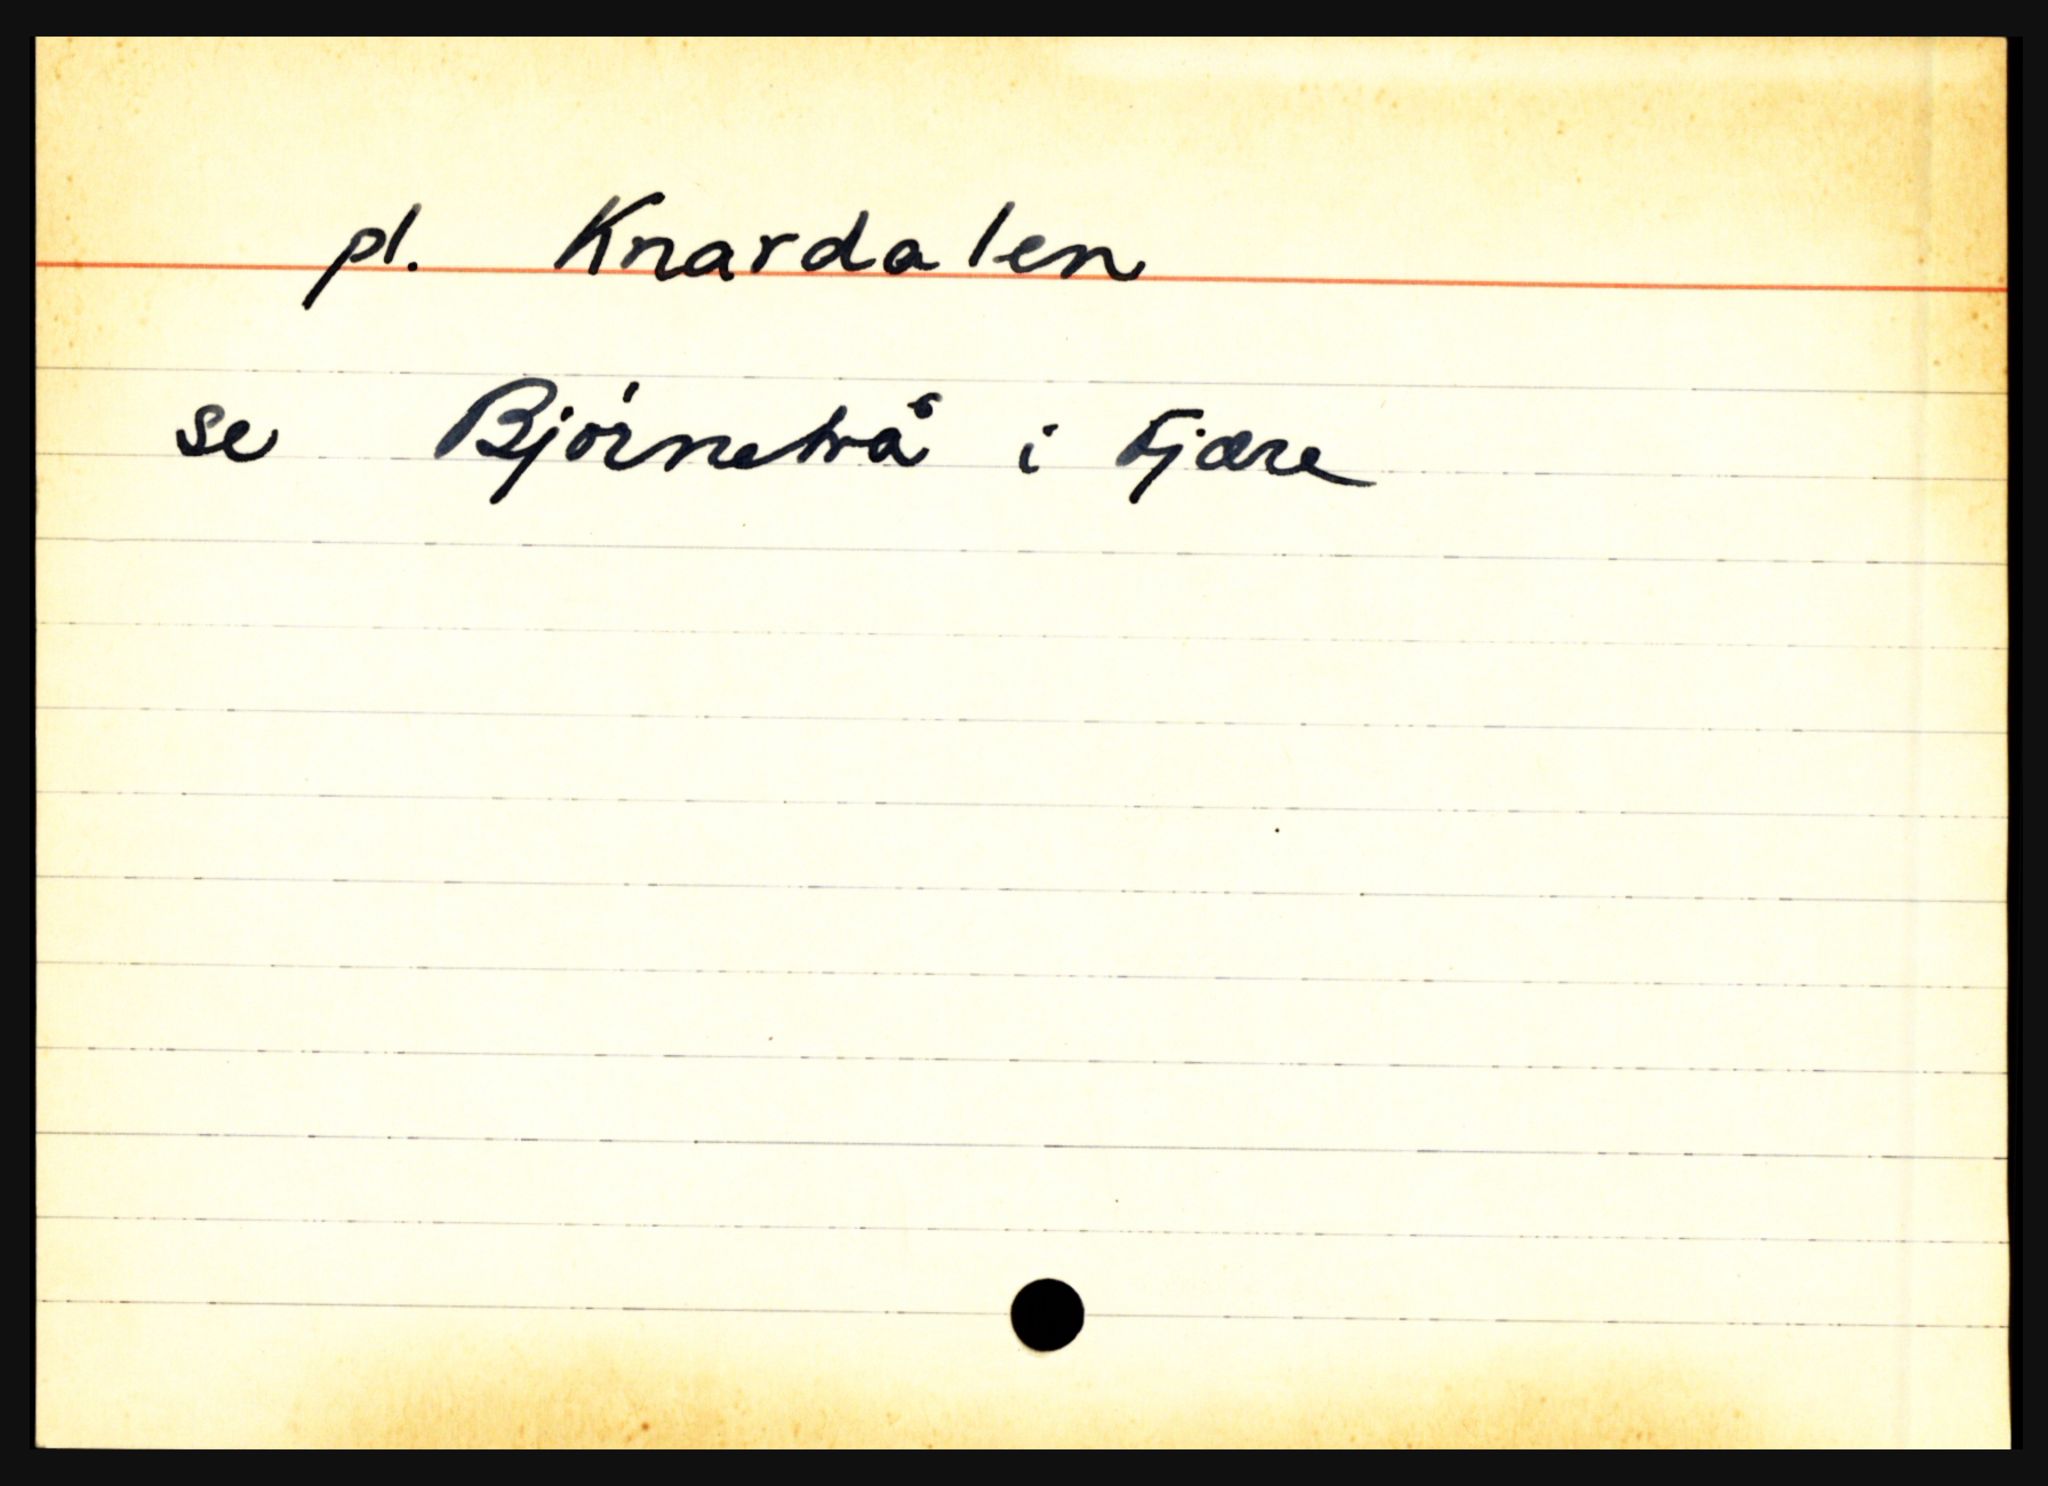 pl. Knardalen
se Bjørnetrå i Fjære